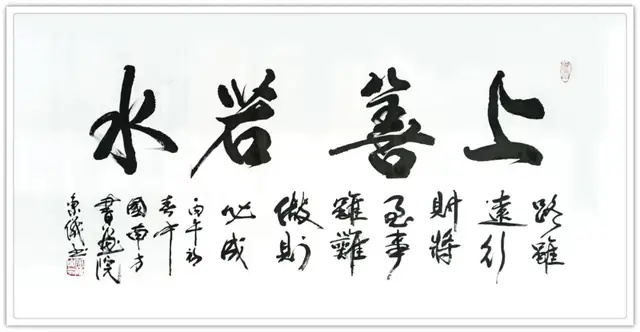 上善若水
路雖
遠行
則將
至事
雖難
做則
必成
丙午初
春中
國南方
書畫院
東儀書